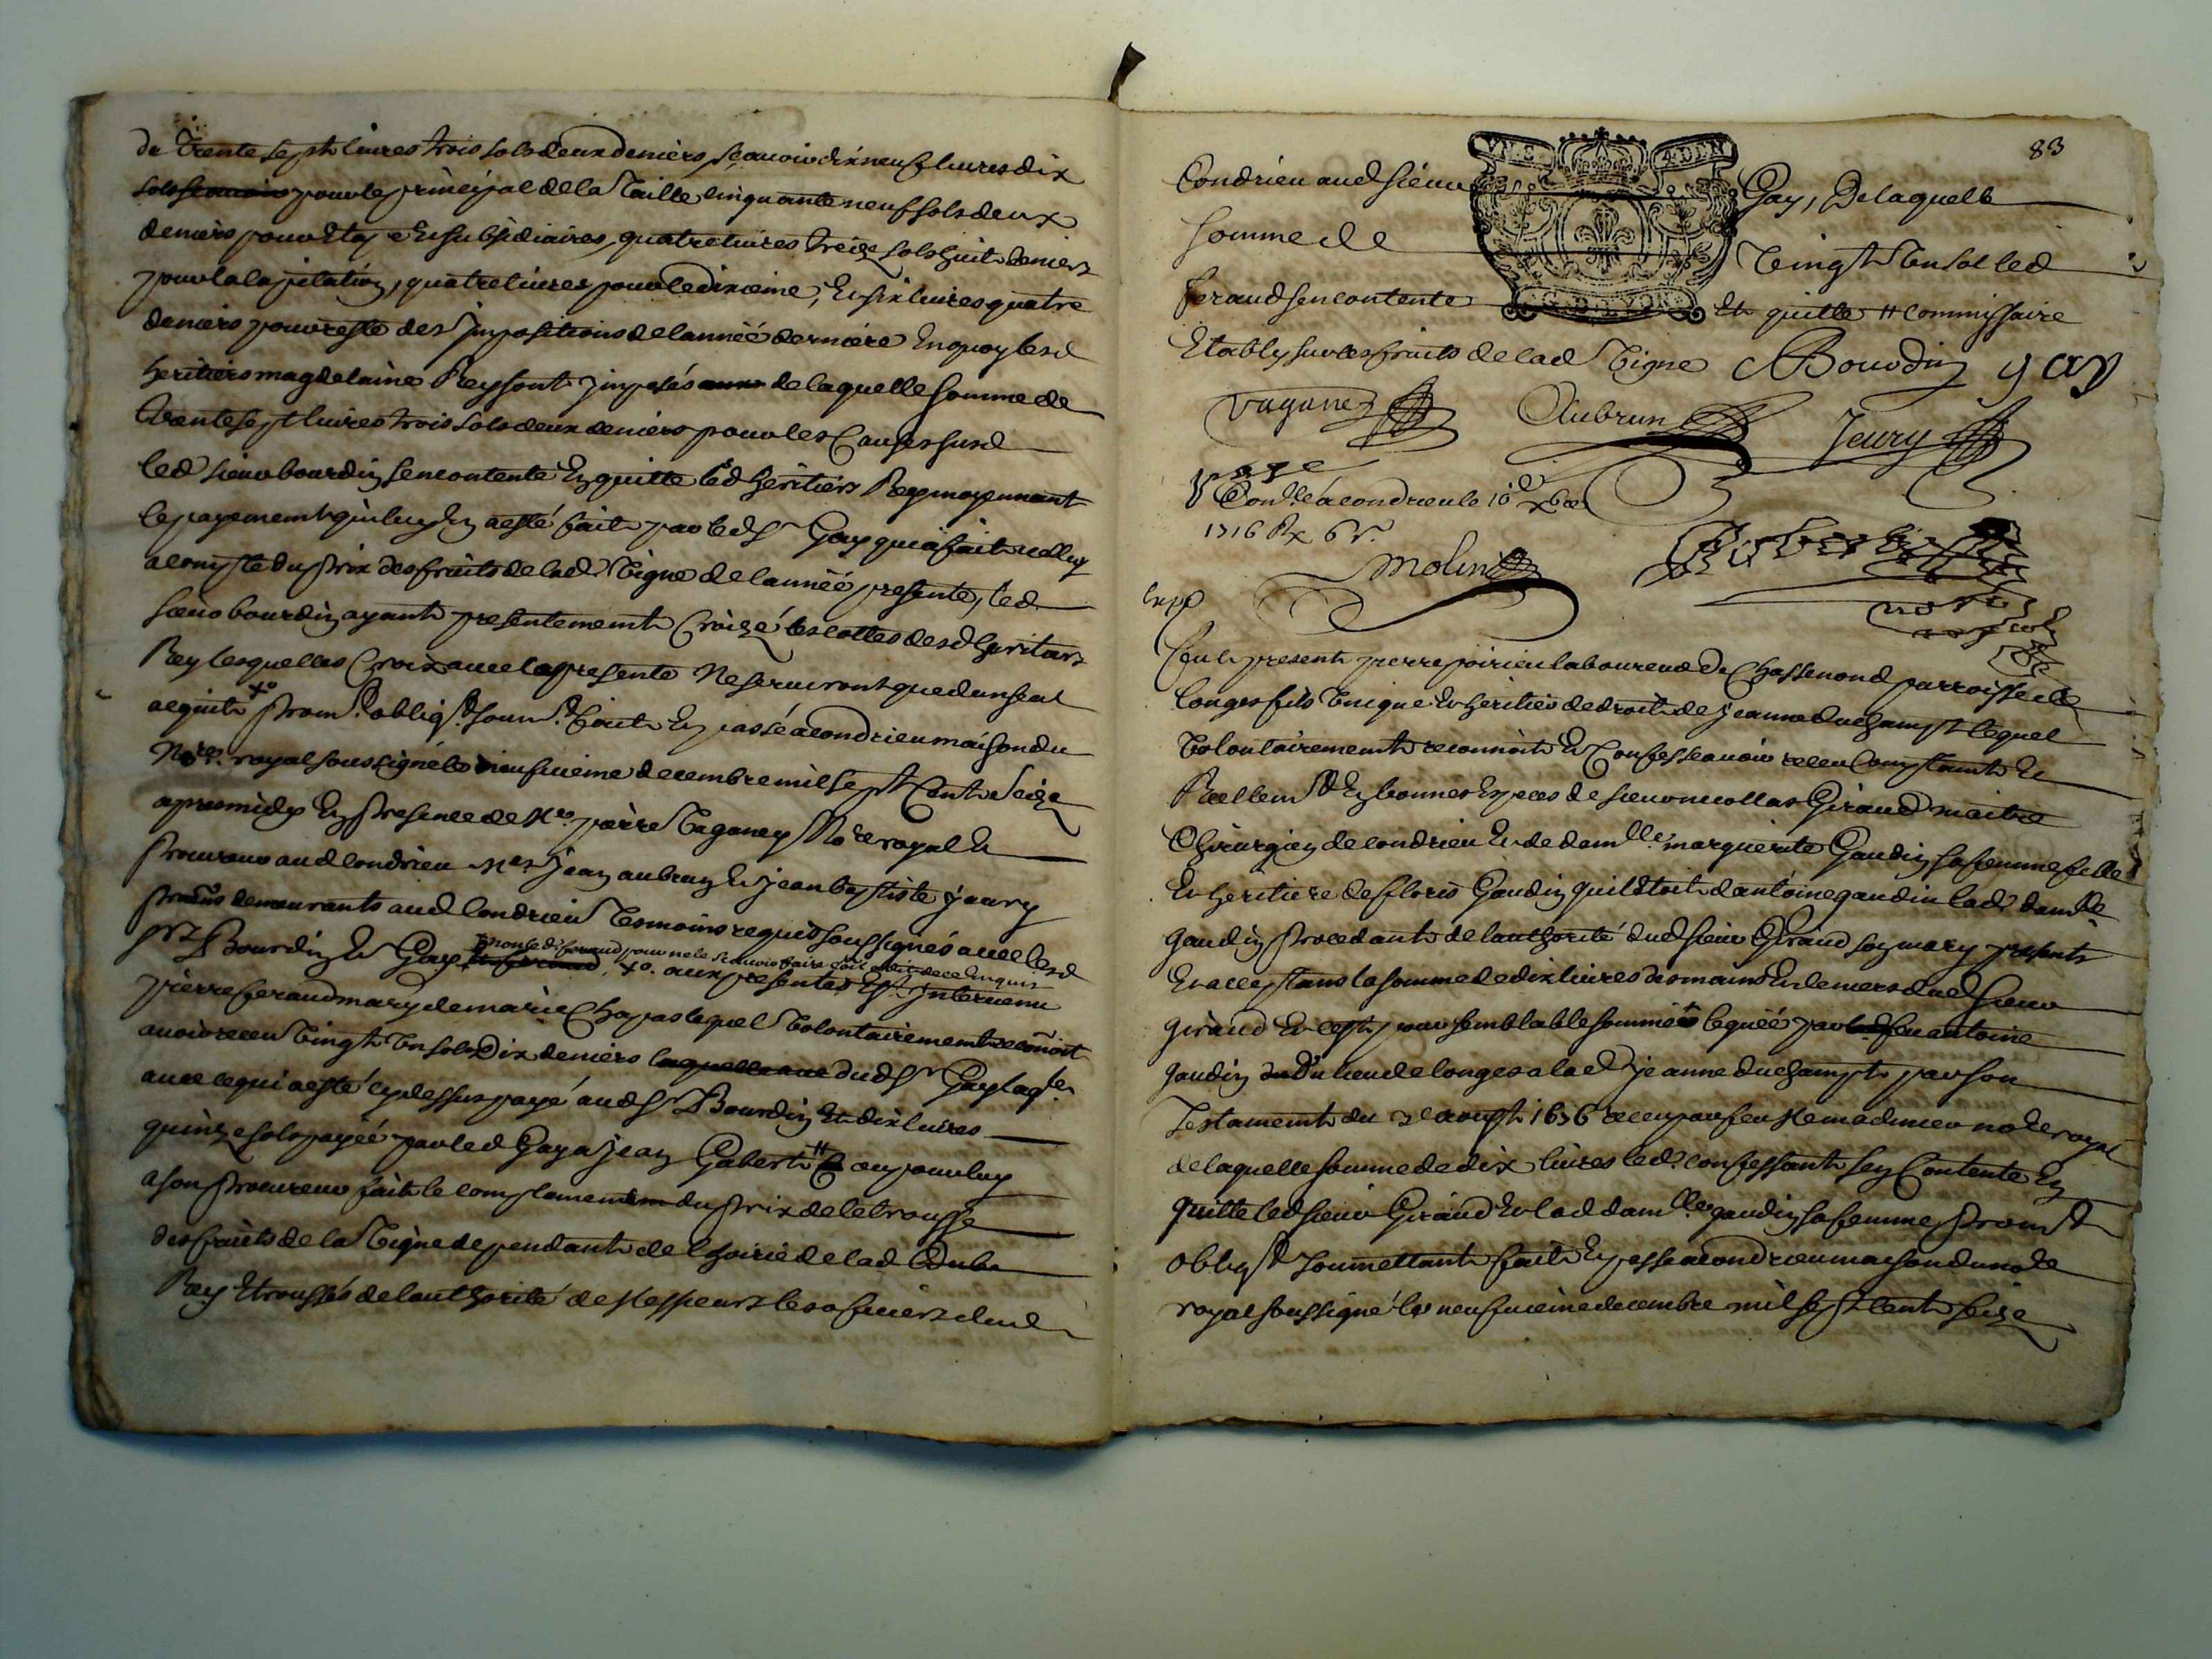 de trente sept livres trois sols deux deniers, sçavoir dixneuf livres dix
sols pour le principal de la taille cinquante neuf sols deux
deniers pour et subsidiaires, quatre livres treize sols huit deniers
pour la capitation, quatre livres pour le dixieme, et six livres quatre
deniers pour reste des impositions de lannéé derniére en quoy lesd
heritiers magdelaine Rey sont imposés de laquelle somme de
trente sept livres trois sols deux deniers pour les causes susd
led sieur bourdin sen contente en quitte lesd heritiers Rey moyennant
le payement qui luy en a esté fait par led Sr Gay qui a fait
a compte du prix des fruits de lad vigne de lannéé presente, led
sieur bourdin ayant presentement croizé les cottes desd heritiers
Rey lesquelles croix avec la presente ne serviront que dun seul
aquit prom. obligt. soum. fait en passé a condrieu maison du
Nore. royal soussigné le neufvieme decembre mil sept cent seize
apres midy en presence de Me. pierre Vaganey Nore royal et
procureur aud condrieu Mes. jean aubrun et jean baptiste jeury
demeurants aud condrieu tesmoins requis soussignés avec lesd
Srs Bourdin et Gay non led feraud pour ne le sçavoir faire de ce enquis
xo. aux presentes est intervenu
pierre feraud mary de marie Chapas lequel volontairement reconoit
avoir receu vingt un sols dix deniers dud Sr Gay laqle.
avec ce qui a esté cy dessus payé aud Sr Bourdin et dix livres
quinze sols payéé par led Gay a jean Gabert ou pour luy
a son procureur fait le complement du prix de letrousse
des fruits de la vigne dependant de lhoirie de lad
Rey etroussés de lauthorité de Messieurs les officiers dud
83
Condrieu aud sieur Gay, De laquelle
somme de vingt un sol led
feraud sen contente et quitte # commissaire
Etably sur les fruits de lad vigne Bourdin gay
Vaganey Aubrun Jeury
Conllé a condrieu le 10e xbre
1716 Rx 6 s.
Molin
exp
Fut present pierre poirieu laboureur de Chassenond parroisse de
longes fils unique et heritier de droit de jeanne duchampt lequel
volontairement reconnoit et confesse avoir receu comptant et
Reellemt en bonnes especes de sieur nicollas Giraud maitre
Chirurgien de condrieu et de damlle. marguerite Gaudin sa femme fille
et heritiere de floris Gaudin qui etoit dantoine gaudin lad. damlle
gaudin procedant de lauthorité dud sieur Giraud son mary present
et acceptans la somme de dix livres des mains et deniers dud sieur
giraud et cest pour semblable somme leguéé par feu antoine
gaudin du lieu de longes a lad jeanne duchampt par son
Testament du aoust 1656 receu par feu Me nore royal
de laquelle somme de dix livres led. confessant sen contente en
quitte led sieur Giraud et lad damlle. gaudin sa femme prom.
obligt soumettant fait en passé a condrieu maison du nore
royal soussigné le neufvieme decembre mil sept cent seize